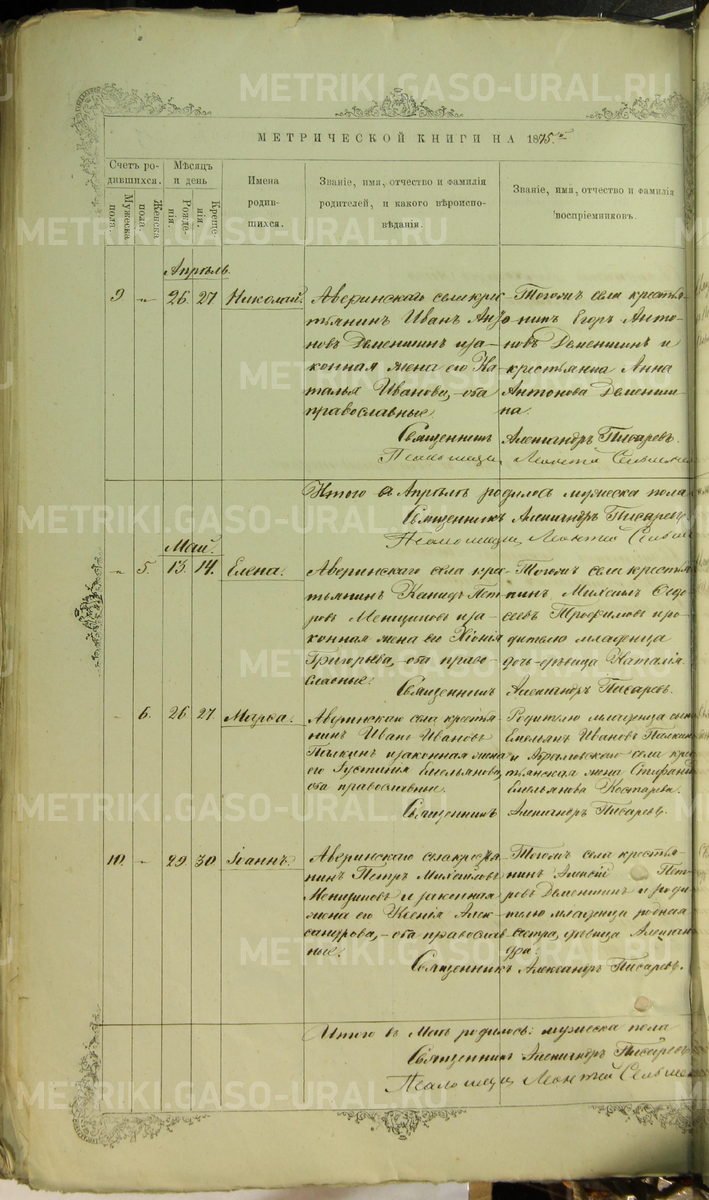 METRIKI.GASO-URAL.RU
МЕТРИЧЕСКОЙ КНИГИ НА 1875
Счетъ ро-
дившихся.
Мужеска
пола.
Женска
пола.
Мѣсяцъ
и день
Рожде-
нія.
Креще-
нія.
Имена
родив-
шихся.
Званіе, имя, отчество и фамилія
родителей, и какого вѣроиспо-
вѣданія.
Званіе, имя, отчество и фамилія
воспріемниковъ.
Апрѣль.
9 " 26 27 Николай.
Аверинскаго села крес
тьянинъ Иванъ Анто
новъ Деменшинъ и за-
конная жена его На-
талья Иванова, оба
православные.
Тогожъ села крестья-
нинъ Егоръ Антоно-
новъ Деменшинъ и
крестьянка Анна
Антонова Деменши-
на.
Священникъ Александръ Писаревъ.
Псаломщикъ Леонтій
Итого въ Апрѣлѣ родилось мужеска пола
Священникъ Александръ Писаревъ
Псаломщикъ Леонтій
Май.
" 5. 13. 14. Елена.
Аверинскаго села крес-
тьянинъ Пет-
ровъ Менщиковъ и за-
конная жена его Хіонія
Григорьева, оба право-
славные.
Тогожъ села крестья-
нинъ Сидо-
ровъ Трофимовъ и ро-
дителю младенца
дочь дѣвица Наталія.
Священникъ Александръ Писаревъ.
" 6. 26 27 Марѳа.
Аверинскаго села крестья-
нинъ Иванъ Ивановъ
Палкинъ и законная жена
его Густинія Емельянова,
оба православные.
Родителю младенца сынъ
Емельянъ Ивановъ Палкинъ
и Абрамовскаго села крес
тьянская жена Стефанида
Емельянова Костарева.
Священникъ Александръ Писаревъ.
10. " 29 30 Іоаннъ.
Аверинскаго села крестья-
нинъ Петръ Михайловъ
Менщиковъ и законная
жена его Ксенія Алек-
сандрова, оба православ-
ные.
Тогожъ села крестья-
нинъ Алексѣй Пет-
ровъ Деменшинъ и роди-
телю младенца родная
сестра, дѣвица Алексан-
дра.
Священникъ Александръ Писаревъ.
Итого въ Маѣ родилось: мужеска пола
Священникъ Александръ Писаревъ
Псаломщикъ Леонтій